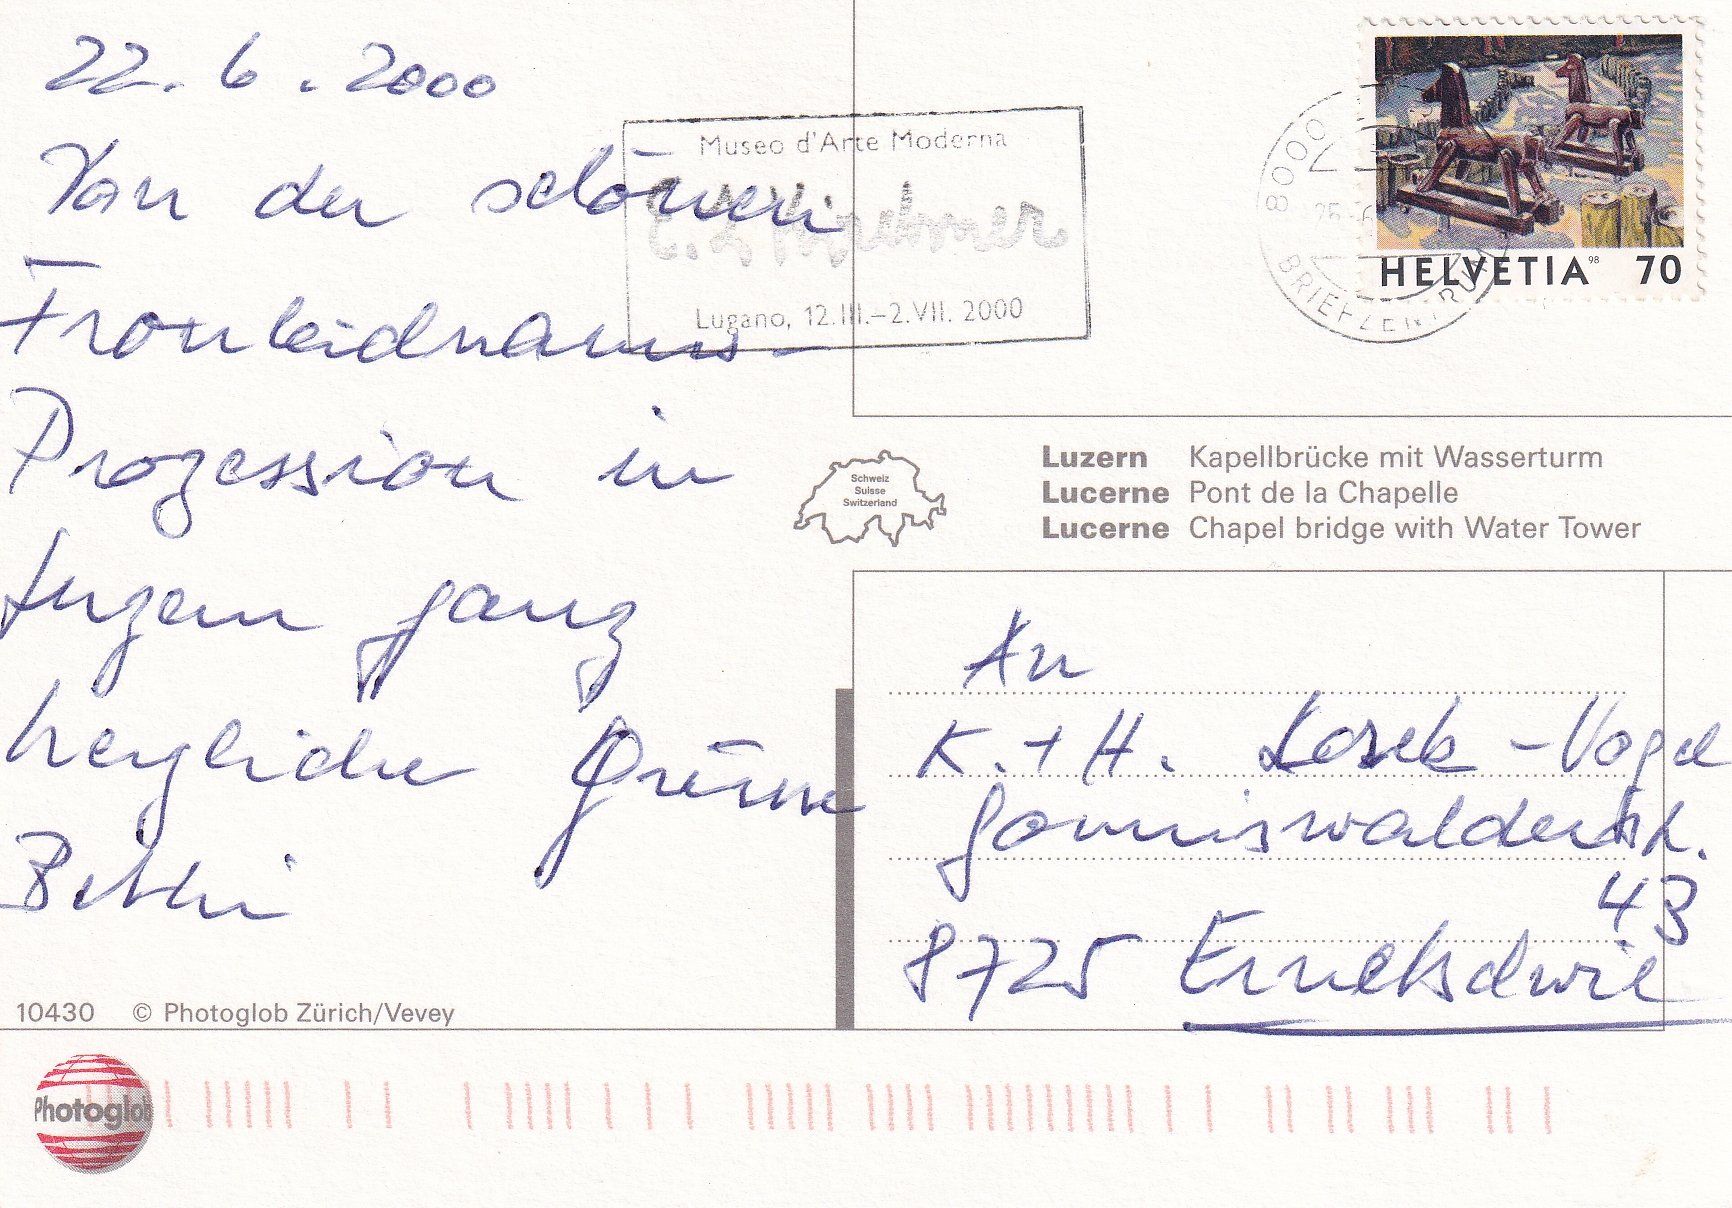 22. 6. 2000
Von der schönen
Fronleichnams-
Prozession in
Luzern ganz
herzliche Grüsse
Bethli
Museo d'Arte Moderna
E. L. Kirchner
Lugano, 12.III.–2.VII. 2000
8000
25. 6
BRIEFZENTRUM
HELVETIA 98 70
Schweiz
Suisse
Switzerland
Luzern Kapellbrücke mit Wasserturm
Lucerne Pont de la Chapelle
Lucerne Chapel bridge with Water Tower
An
K. + H. -Vogel
Gommiswalderstr.
43
8725 Ernetschwil
10430 © Photoglob Zürich/Vevey
Photoglob